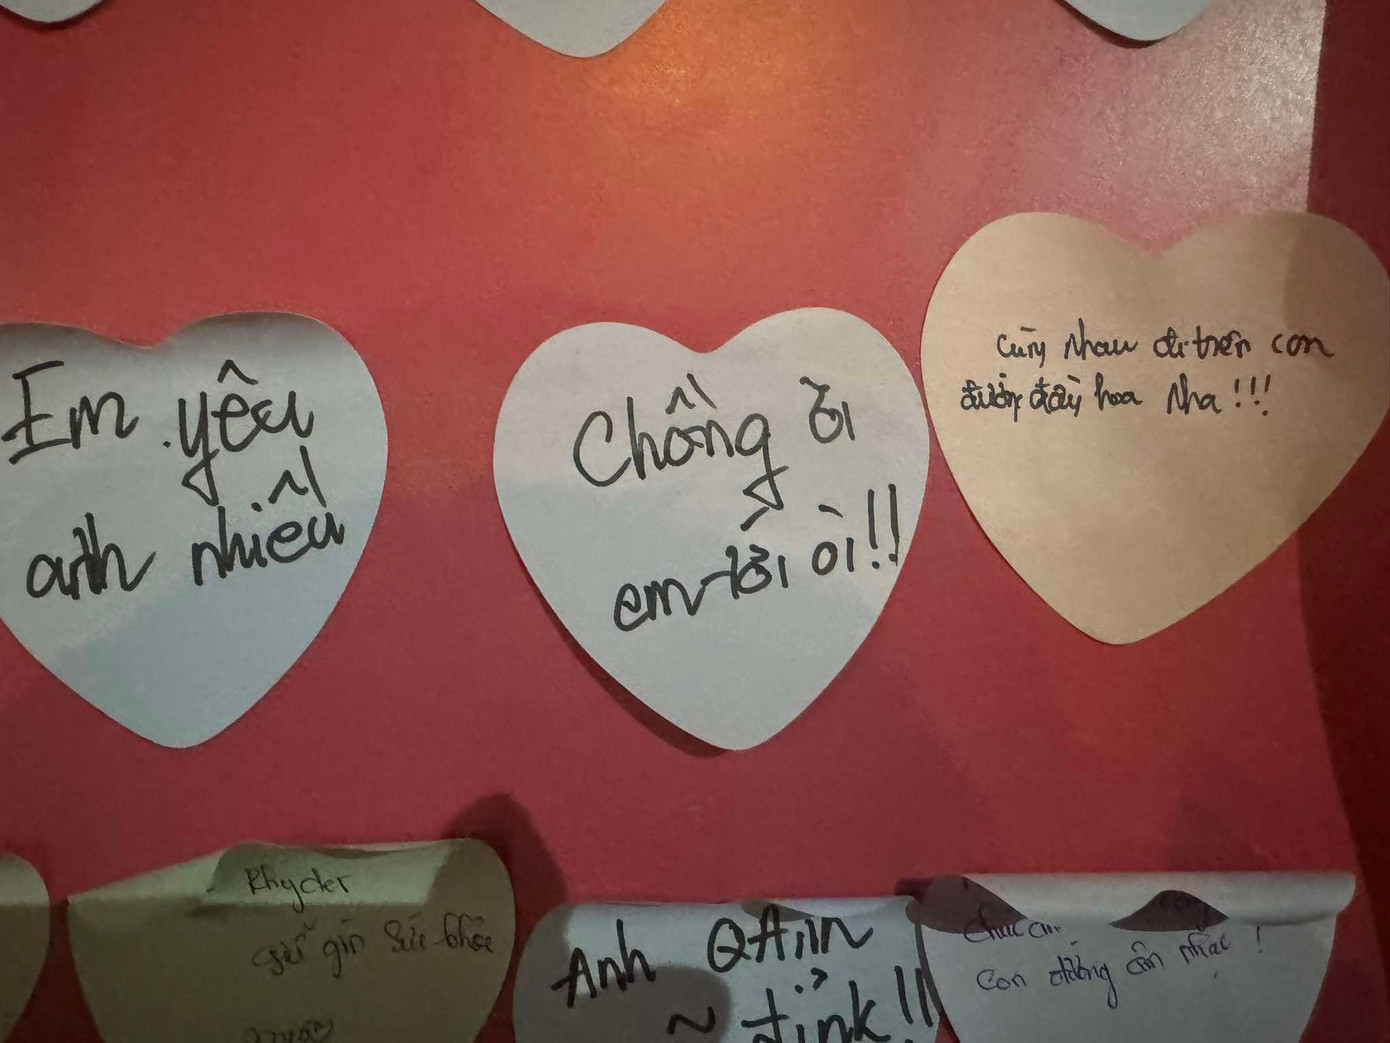 Em yêu
anh nhiều
Chồng ời
em tới òi!!
cùng nhau đi trên con
đường đầy hoa nha!!!
Rhyder
giữ gìn sức khỏe
Anh QAnh
~ đỉnk!!
chúc
con đường âm nhạc !